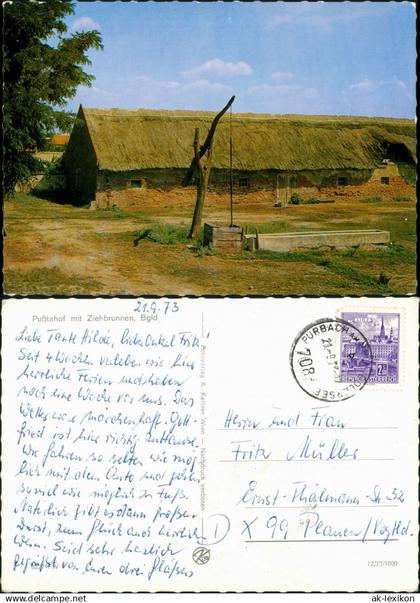 Pußtahof mit Ziehbrunnen, Bgld
21.9.73
Liebe Tante Hilde, lieber Onkel Fritz!
Seit 4 Wochen verleben wir hier
herrliche Ferien und haben
noch eine Woche vor uns. Das
Wetter war märchenhaft. Gott-
fried ist hier richtig
wir fahren so selten wie mög-
lich mit dem Auto und gehen
soviel wie möglich zu Fuß.
Natürlich gibt es dann großen
Durst, zum Glück auch herrlichen
Wein. Seid sehr herzlich
gegrüßt von Euren drei
Postverlag A. Kellner Wien - Nachdruck verboten
PURBACH AM NEUSIEDLERSEE
7083
Herrn und Frau
Fritz Müller
Ernst-Thälmann-Str 32
D X 99 Plauen/Vogtld.
12/72/1000
ak-lexikon
© ak-lexikon.de